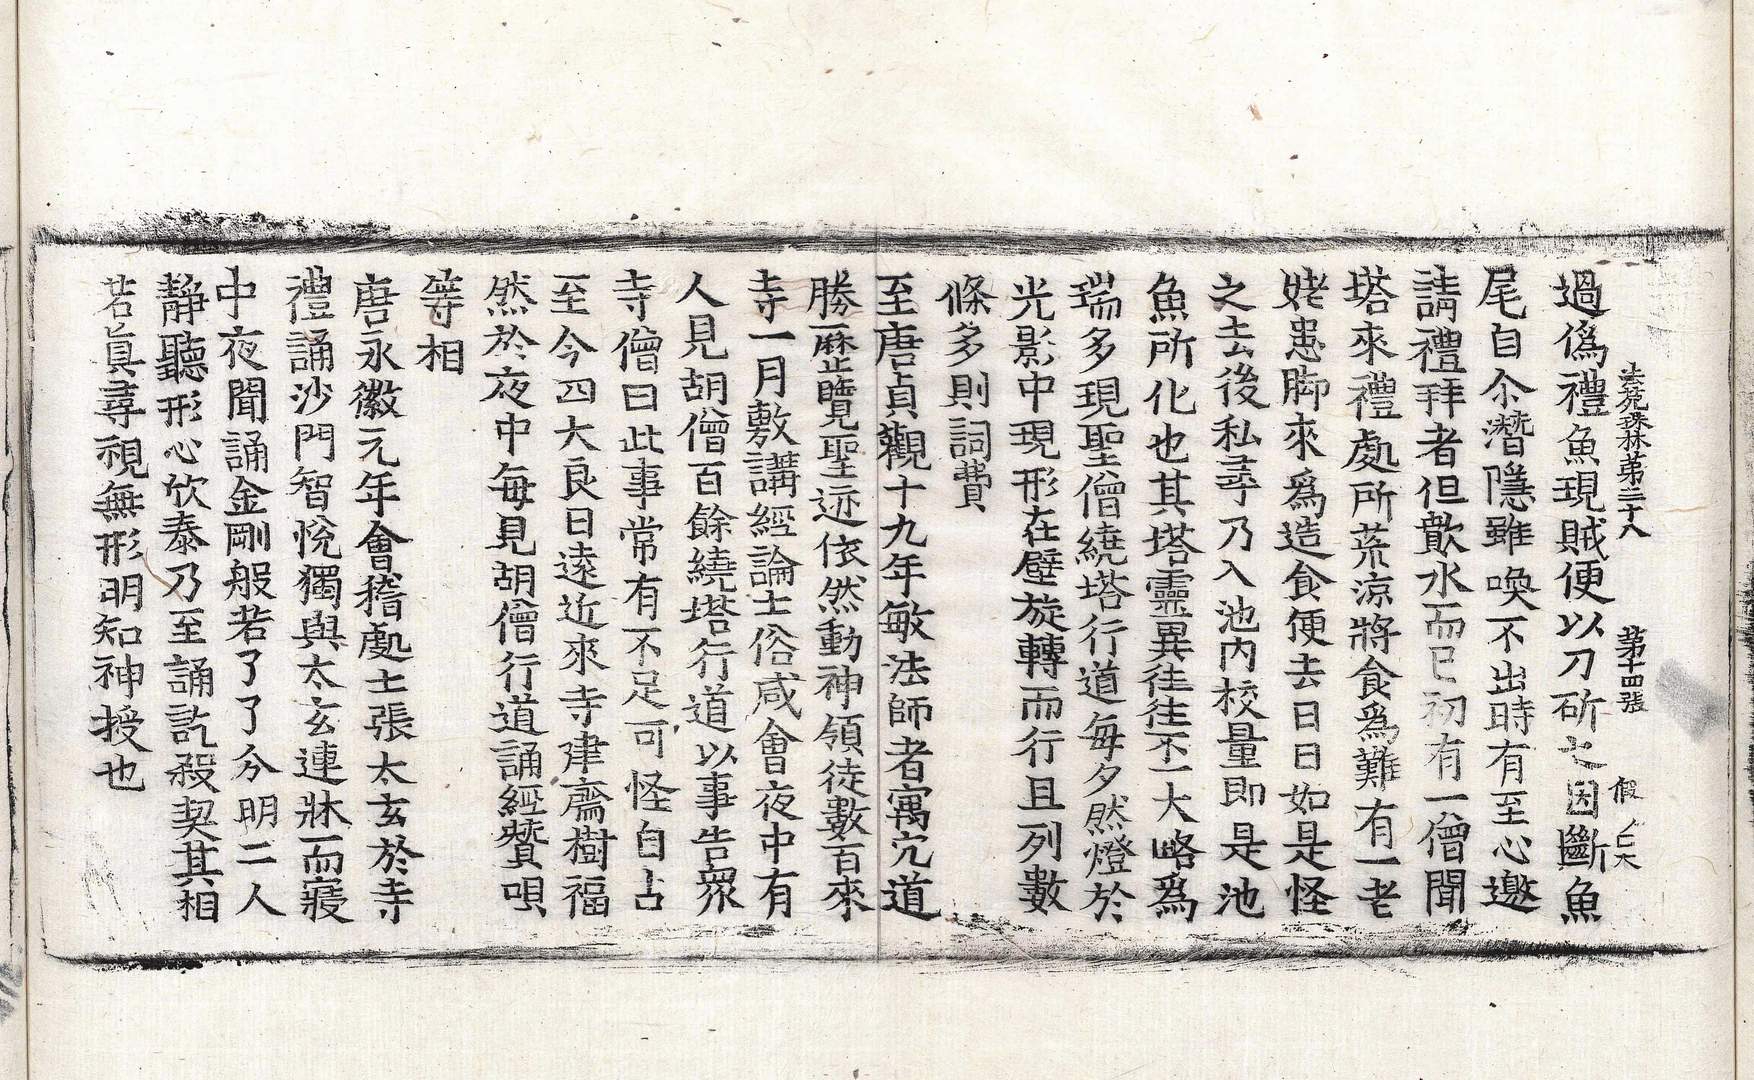 法苑珠林第三十八　第十四張　假
過偽禮魚現賊便以刀斫之因斷魚
尾自尒潛隱雖喚不出時有至心邀
請禮拜者但歕水而已初有一僧聞
塔來禮處所荒涼將食為難有一老
姥患脚來為造食便去日日如是怪
之去後私尋乃入池內校量即是池
魚所化也其塔靈異往往不一大略為
瑞多現聖僧繞塔行道每夕然燈於
光影中現形在壁旋轉而行且列數
條多則詞費
至唐貞觀十九年敏法師者寓穴道
勝歷覽聖迹依然動神領徒數百來
寺一月敷講經論士俗咸會夜中有
人見胡僧百餘繞塔行道以事告眾
寺僧曰此事常有不足可怪自古
至今四大良日遠近來寺建齋樹福
然於夜中每見胡僧行道誦經贊唄
等相
唐永徽元年會稽處士張太玄於寺
禮誦沙門智悅獨與太玄連牀而寢
中夜聞誦金剛般若了了分明二人
靜聽形心欣泰乃至誦訖殺契其相
若真尋視無形明知神授也